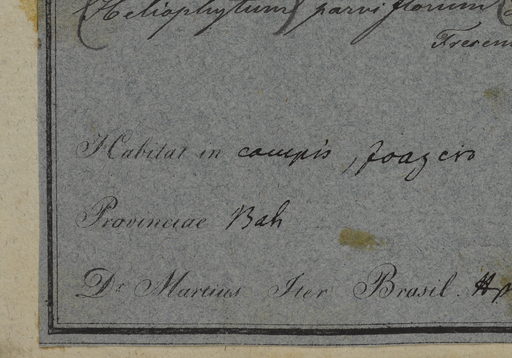 (Heliophytum) parviflorum (
Fresen
Habitat in campis, Joazeiro
Provinciae Bah
Dr. Martius Iter Brasil.